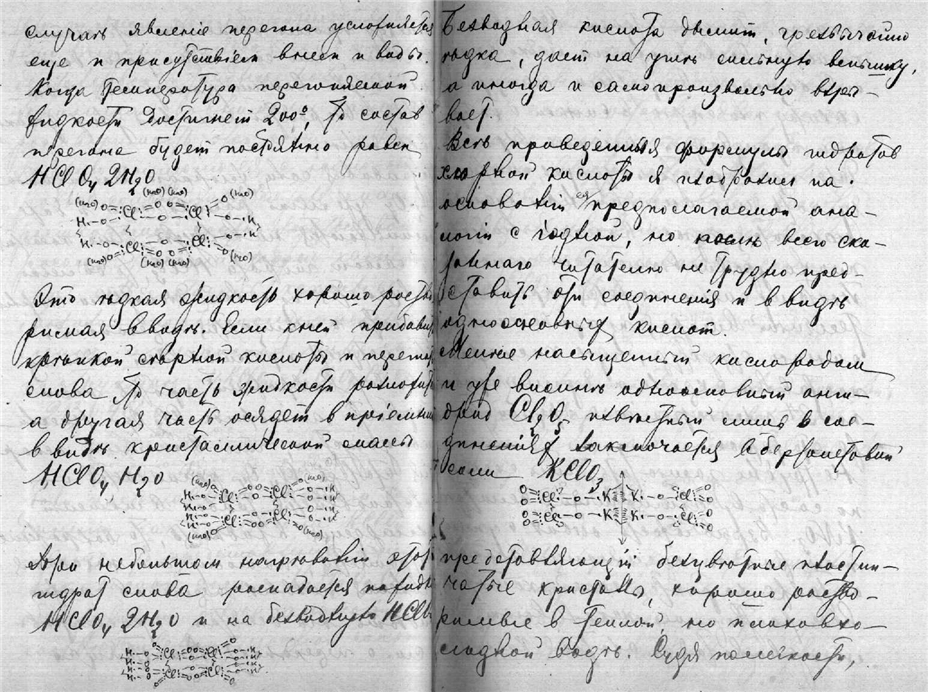 случаѣ явленіе перегона усложняется
еще и присутствіем в ней и воды.
Когда температура перегоняемой
жидкости достигнет 200°, то состав
перегона будет постоянно равен
HClO4 2H2O
Это ѣдкая жидкость хорошо раство
римая в водѣ. Если к ней прибавить
крѣпкой хлорной кислоты и
снова то часть жидкости
а другая часть осядет в пріемник
в видѣ кристаллической массы
HClO4 H2O
При небольшом нагрѣваніи этот
гидрат снова распадается на
HClO4 2H2O и на безводную HClO4
Безводная кислота дымит, чрезвычайно
ѣдка, дает на угле сильную вспышку,
а иногда и самопроизвольно взры-
вает.
Всѣ приведенныя формулы гидратов
хлорной кислоты я изобразил на
основаніи предполагаемой ана-
логіи с іодной, но послѣ всего ска-
заннаго читателю не трудно пред-
ставить эти соединенія и в видѣ
одноосновных кислот.
Менее насыщенный кислородом
и уже вполнѣ одноосновный анги-
дрид Cl2O5 извѣстный лишь в сое-
диненіях заключается в бертолетовой
соли KClO3
представляющій безцвѣтные пластин-
чатые кристаллы, хорошо раство-
римые в теплой но плохо в хо-
лодной водѣ. Судя по легкости,